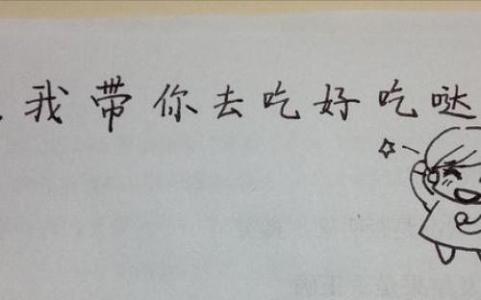 我带你去吃好吃哒